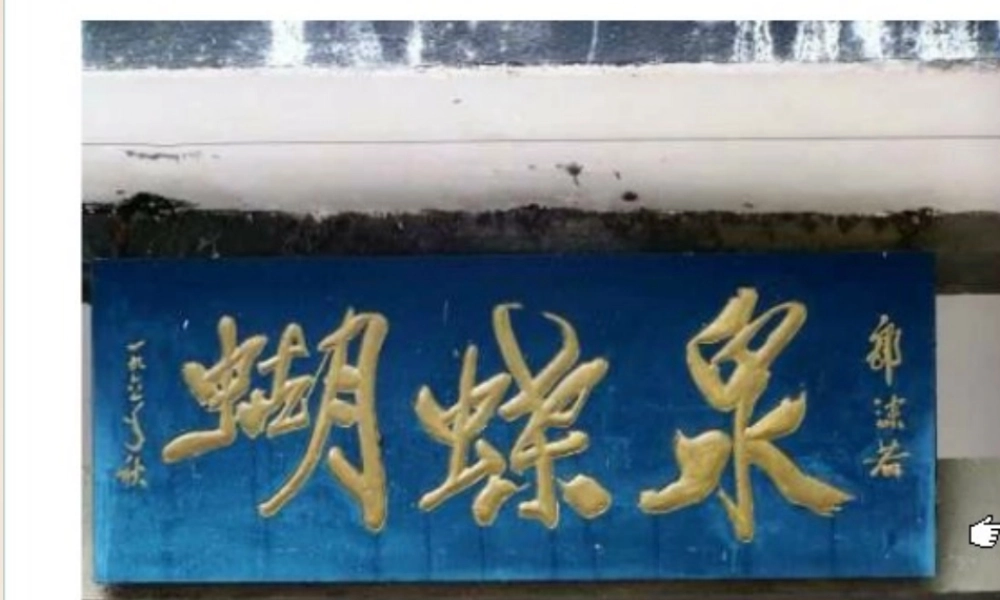 一九六一年秋
蝴蝶泉
郭沫若